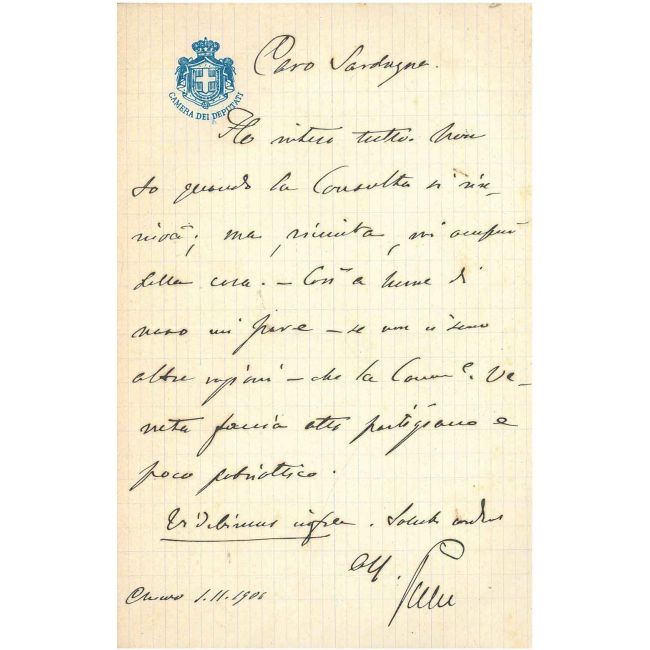 CAMERA DEI DEPUTATI
Caro Sardagna.
Ho inteso tutto. Non
so quando la Consulta si riu-
nirà; ma, riunita, mi occuperò
della cosa. - Così a lume di
naso mi pare - se non ci sono
altre ragioni - che la Comm.e Ve-
neta faccia atto partigiano e
poco patriottico.
Videbimus infra. Saluti cordiali
1.11.1906